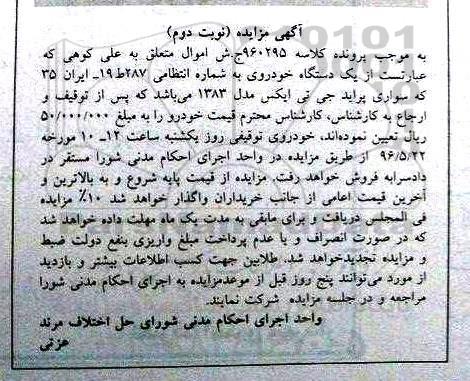 آگهی مزایده (نوبت دوم)
به موجب پرونده کلاسه ۹۶۰۲۹۵ج.ش اموال متعلق به علی کوهی که
عبارتست از یک دستگاه خودروی به شماره انتظامی ۲۸۷ط۱۹ـ ایران ۳۵
که سواری پراید جی تی ایکس مدل ۱۳۸۳ می‌باشد که پس از توقیف و
ارجاع به کارشناس، کارشناس محترم قیمت خودرو را به مبلغ ۵۰/۰۰۰/۰۰۰
ریال تعیین نموده‌اند، خودروی توقیفی روز یکشنبه ساعت ۱۲ـ ۱۰ مورخه
۹۶/۵/۲۲ از طریق مزایده در واحد اجرای احکام مدنی شورا مستقر در
دادسرابه فروش خواهد رفت. مزایده از قیمت پایه شروع و به بالاترین و
آخرین قیمت اعامی از جانب خریداران واگذار خواهد شد ۱۰٪ مزایده
فی المجلس دریافت و برای مابقی به مدت یک ماه مهلت داده خواهد شد
که در صورت انصراف و یا عدم پرداخت مبلغ واریزی بنفع دولت ضبط
و مزایده تجدیدخواهد شد. طلابین جهت کسب اطلاعات بیشتر و بازدید
از مورد می‌توانند پنج روز قبل از موعدمزایده به اجرای احکام مدنی شورا
مراجعه و در جلسه مزایده شرکت نمایند.
واحد اجرای احکام مدنی شورای حل اختلاف مرند
هزتی